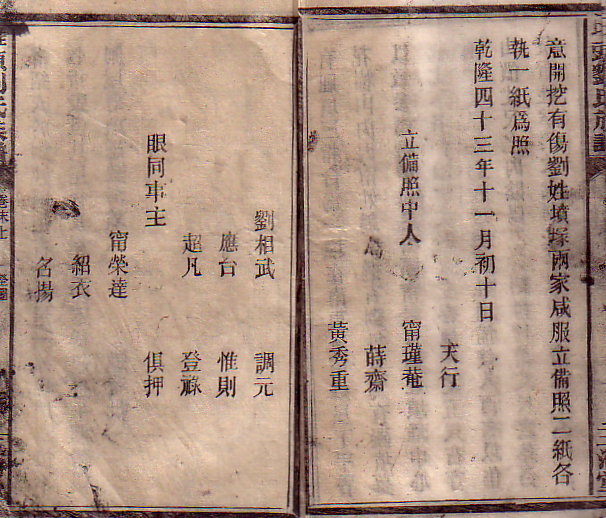 意開挖有傷劉姓墳塚兩家咸服立備照二紙各
執一紙爲照
乾隆四十三年十一月初十日
天行
立備照中人 甯瓊菴
蒔齋
黃秀重
劉相武 調元
應台 惟則
超凡 登
眼同事主 俱押
甯榮達
紹衣
名揚
劉氏族譜
卷末上